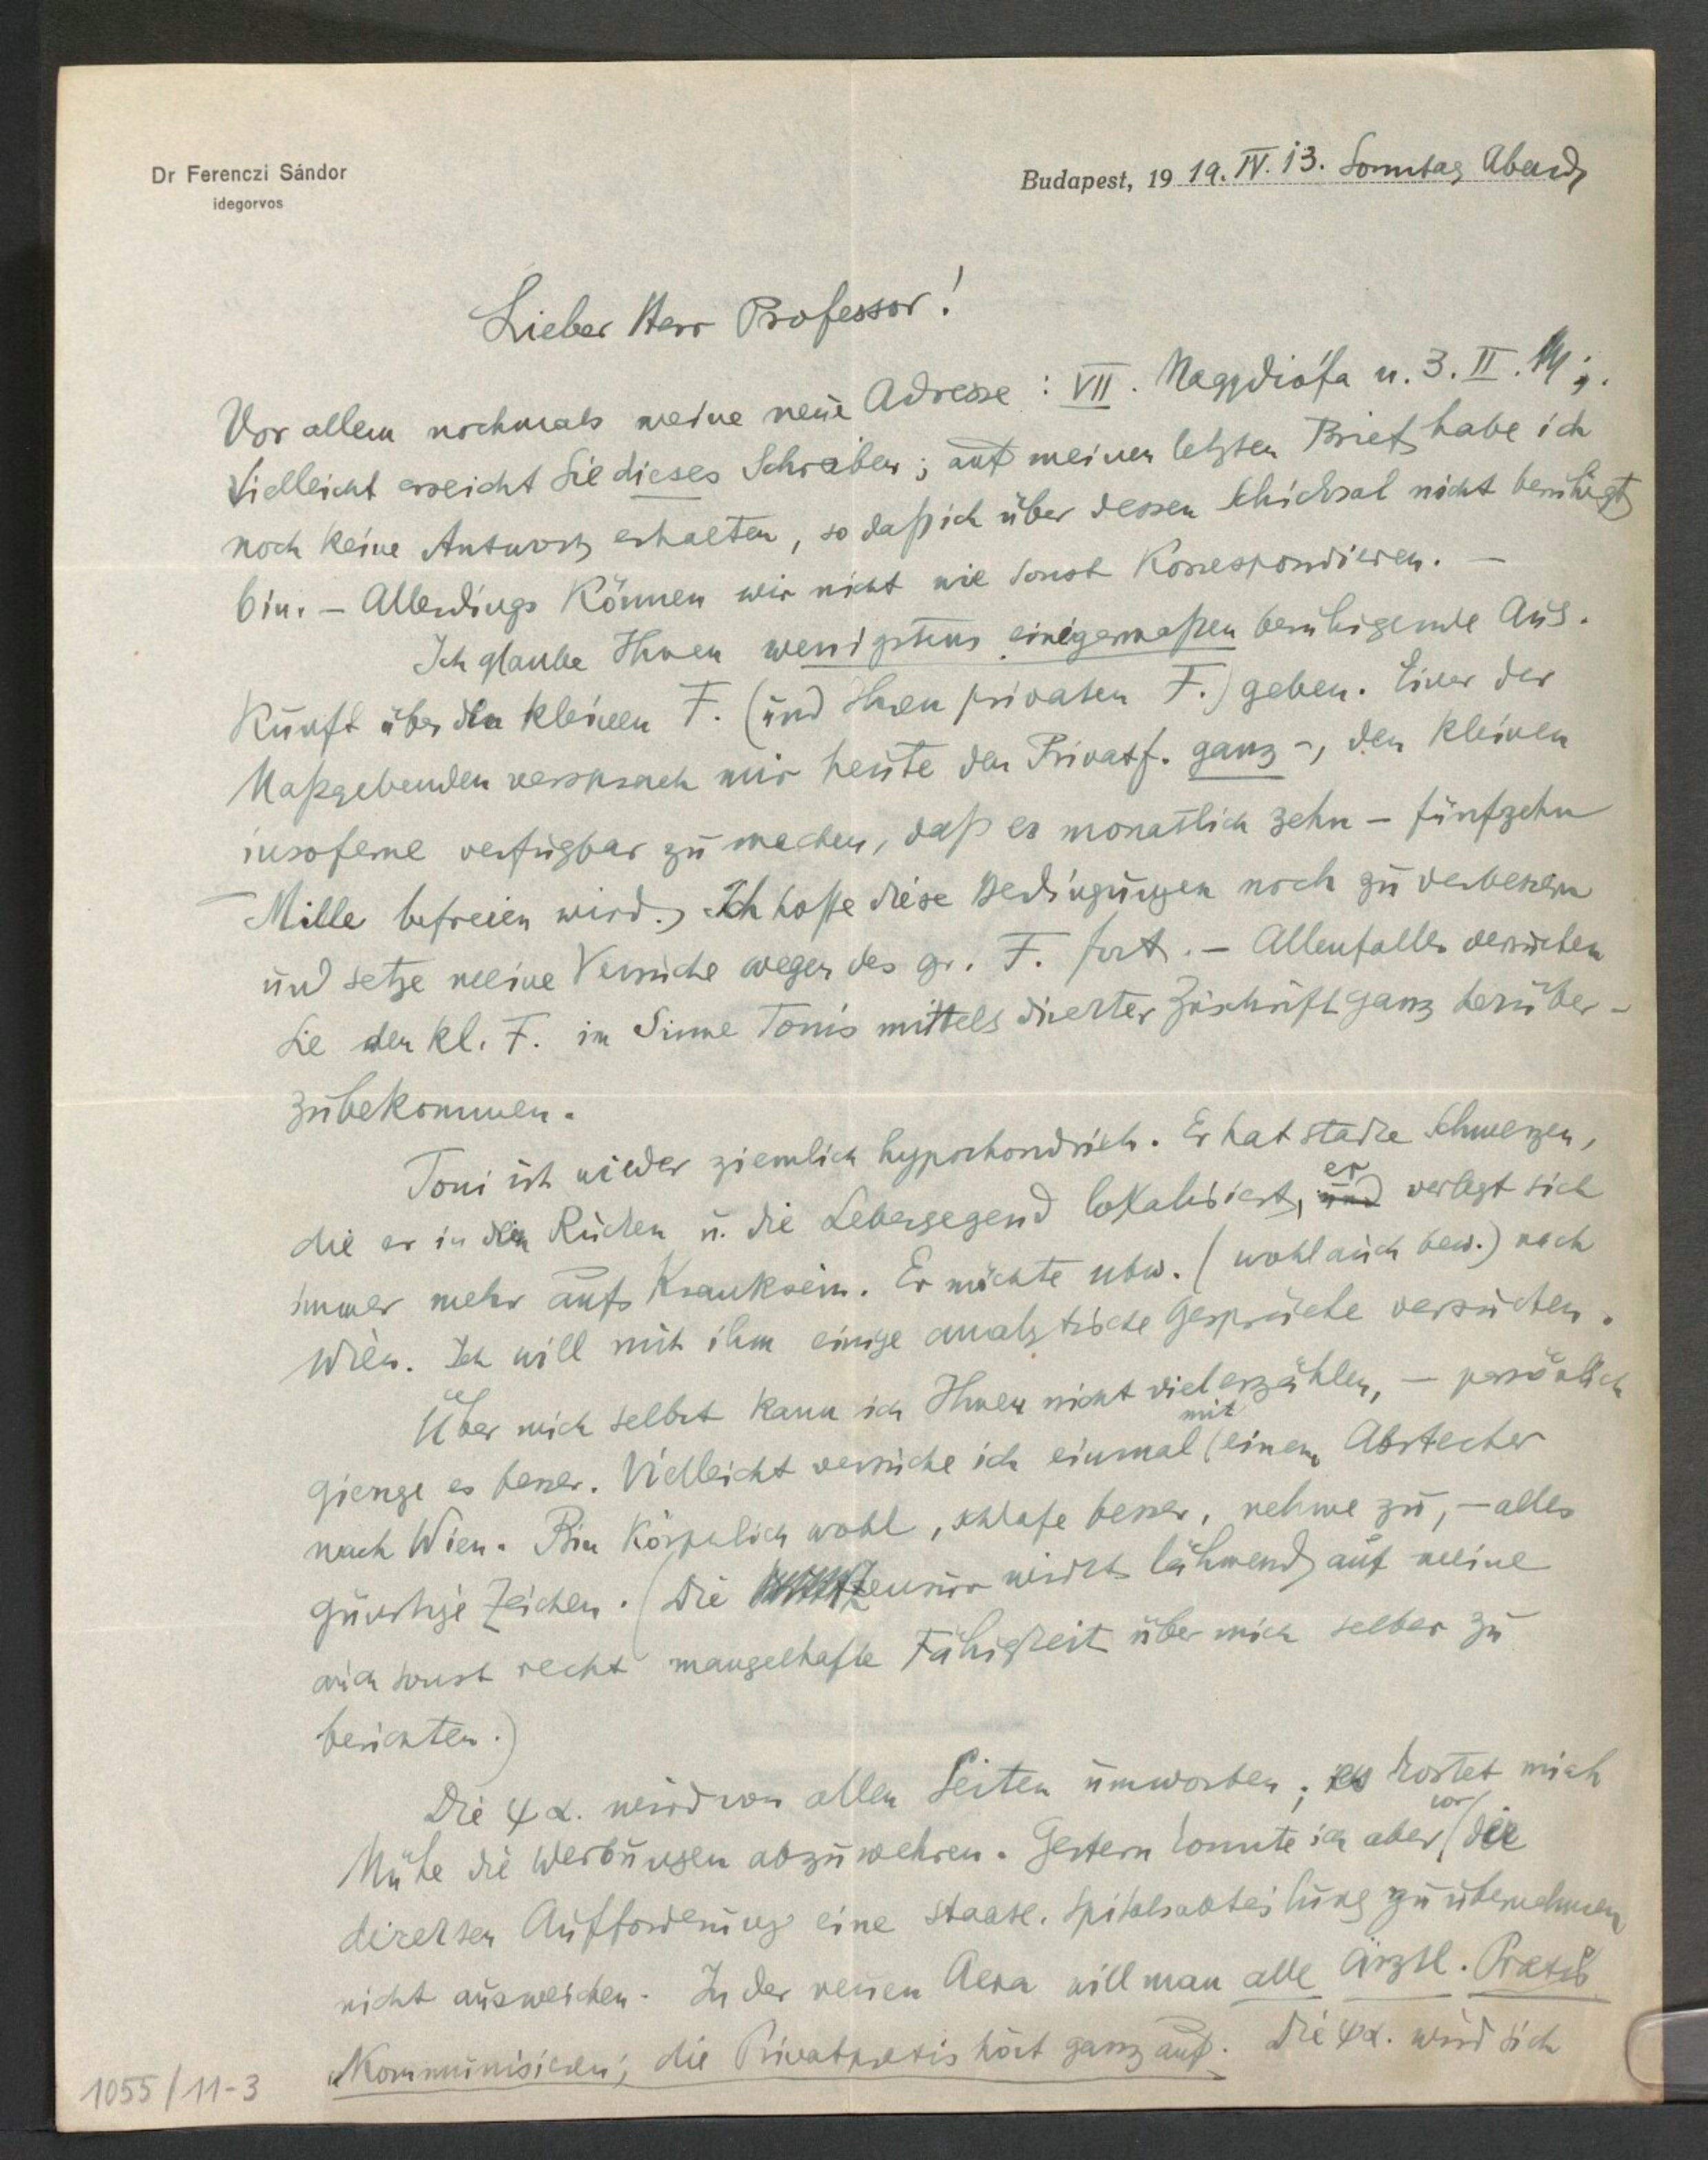 Dr Ferenczi Sándor
idegorvos
Budapest, 19 19. IV. 13. Sonntag Abend
Lieber Herr Professor!
Vor allem nochmals meine neue Adresse: VII. Nagydiófa u. 3. II.
Vielleicht erreicht Sie dieses Schreiben; auf meinen letzten Brief habe ich
noch keine Antwort erhalten, so daß ich über dessen Schicksal nicht beruhigt
bin. – Allerdings können wir nicht wie sonst korrespondieren. –
Ich glaube Ihnen wenigstens einigermaßen beruhigende Aus-
kunft über den kleinen F. (und Ihren privaten F.) geben. Einer der
Maßgebenden versprach mir heute den Privatf. ganz –, den kleinen
insoferne verfügbar zu machen, daß er monatlich zehn – fünfzehn
Mille befreien wird. Ich hoffe diese Bedingungen noch zu verbessern
und setze meine Versuche wegen des gr. F. fort. – Allenfalls versuchen
Sie den kl. F. im Sinne Tonis mittels direkter Zuschrift ganz herüber-
zubekommen.
Toni ist wieder ziemlich hypochondrisch. Er hat starke Schmerzen,
die er in den Rücken u. die Lebergegend lokalisiert, und er verlegt sich
immer mehr aufs Kranksein. Er möchte ubw. (wohl auch bew.) nach
Wien. Ich will mit ihm einige analytische Gespräche versuchen.
Über mich selbst kann ich Ihnen nicht viel erzählen, – persönlich
gienge es besser. Vielleicht versuche ich einmal mit einem Abstecher
nach Wien. Bin körperlich wohl, schlafe besser, nehme zu, – alles
günstige Zeichen. (Die Zensur wirkt lähmend auf meine
auch sonst recht mangelhafte Fähigkeit über mich selber zu
berichten.)
Die ψα. wird von allen Seiten umworben; es kostet mich
Mühe die Werbungen abzuwehren. Gestern konnte ich aber vor die
direkten Aufforderung eine staatl. Spitalsabteilung zu übernehmen
nicht ausweichen. In der neuen Aera will man alle ärztl. Praxis
„Kommunisieren“; die Privatpraxis hört ganz auf. Die ψα. wird sich
1055/11-3